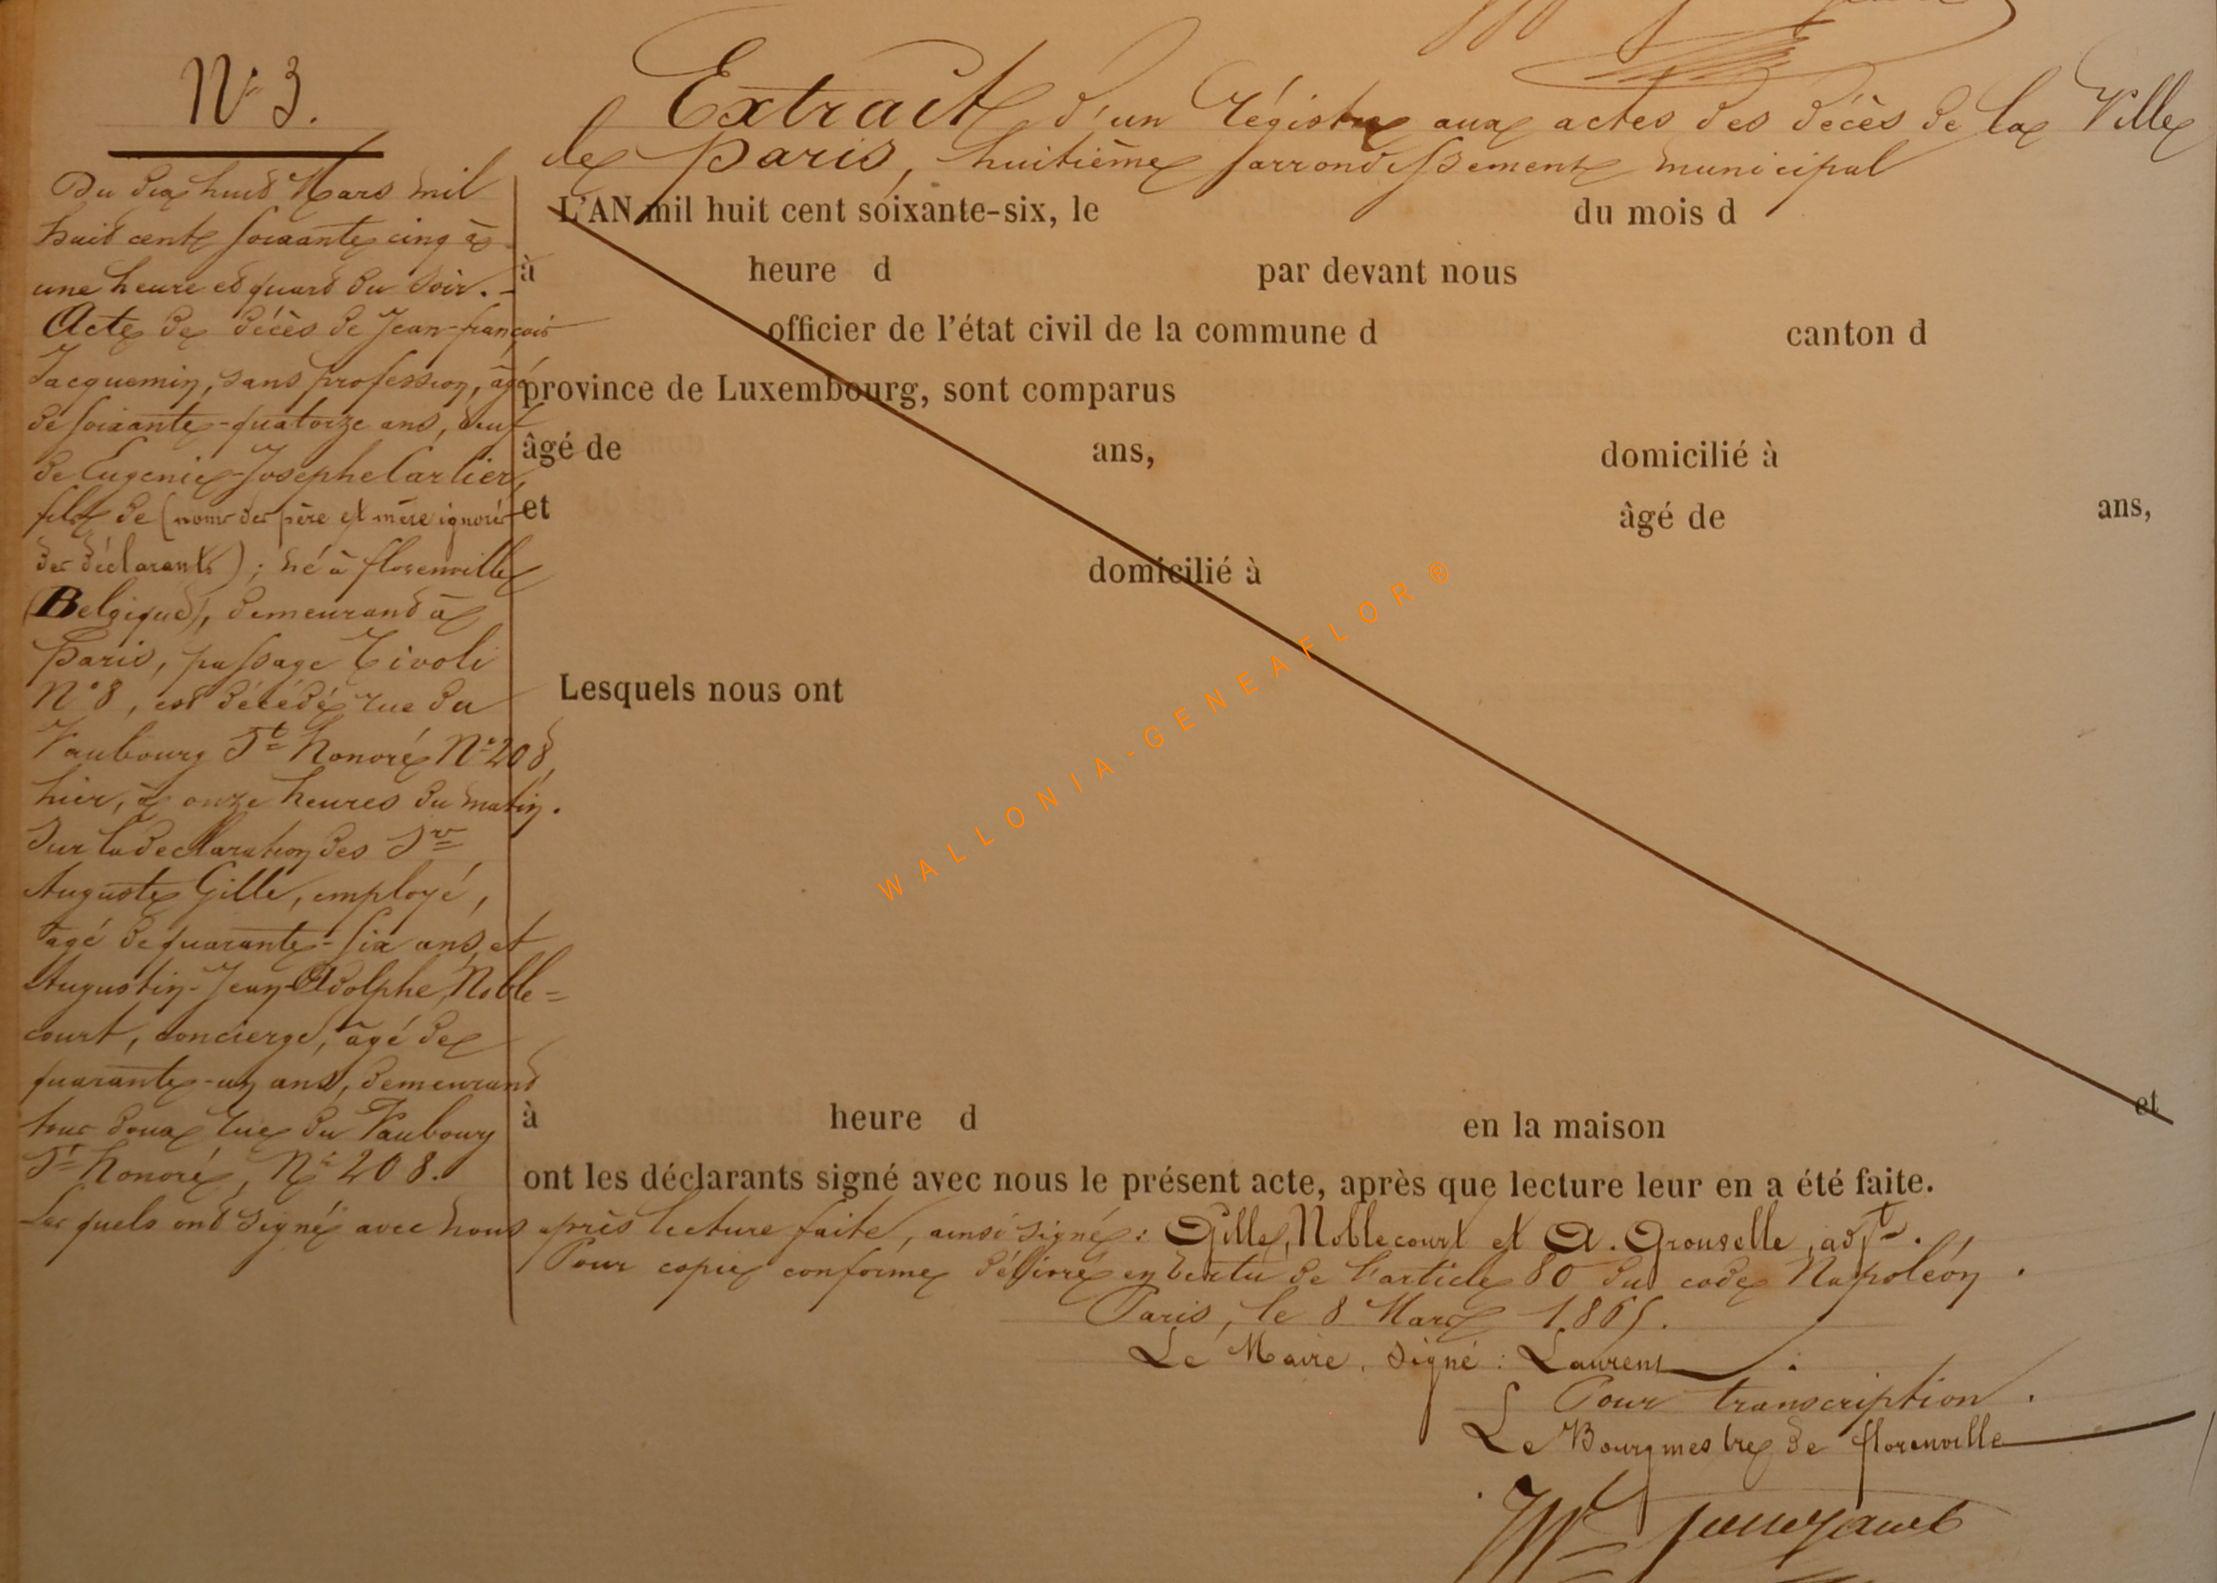 N° 3.
Extrait d'un régistre aux actes des décès de la Ville
de Paris, huitième arrondissement municipal
Du dix huit Mars mil
huit cent soixante cinq à
une heure et quart du soir. -
Acte de décès de Jean-françois
Jacquemin, sans profession, âgé
de soixante-quatorze ans, veuf
de Eugenie-Josephe Carlier,
fils de (noms des père et mère ignorés
des déclarants) ; né à florenville
(Belgique), demeurant à
Paris, passage Tivoli
N° 8, est décédé rue du
Faubourg St honoré N° 208,
hier, à onze heures du matin.
Sur la declaration des Srs
Auguste Gille, employé,
âgé de quarante-six ans, et
Augustin-Jean-Adolphe, Noble=
court, concierge, âgé de
quarante-un ans, demeurant
tous deux rue du Faubourg
St honoré, N° 208.
L'AN mil huit cent soixante-six, le du mois d
à heure d par devant nous
officier de l'état civil de la commune d canton d
province de Luxembourg, sont comparus
âgé de ans, domicilié à
et âgé de ans,
domicilié à
Lesquels nous ont
et
à heure d en la maison
ont les déclarants signé avec nous le présent acte, après que lecture leur en a été faite.
Les quels ont signé avec nous après lecture faite, ainsi signé : Gille, Noblecourt et A. Grouselle, adjt.
Pour copie conforme délivré en vertu de l'article 80 du code Napoléon.
Paris, le 8 Mars 1865.
Le Maire, signé : Laurent.
Pour transcription.
Le Bourgmestre de florenville
WALLONIA-GENEAFLOR ®